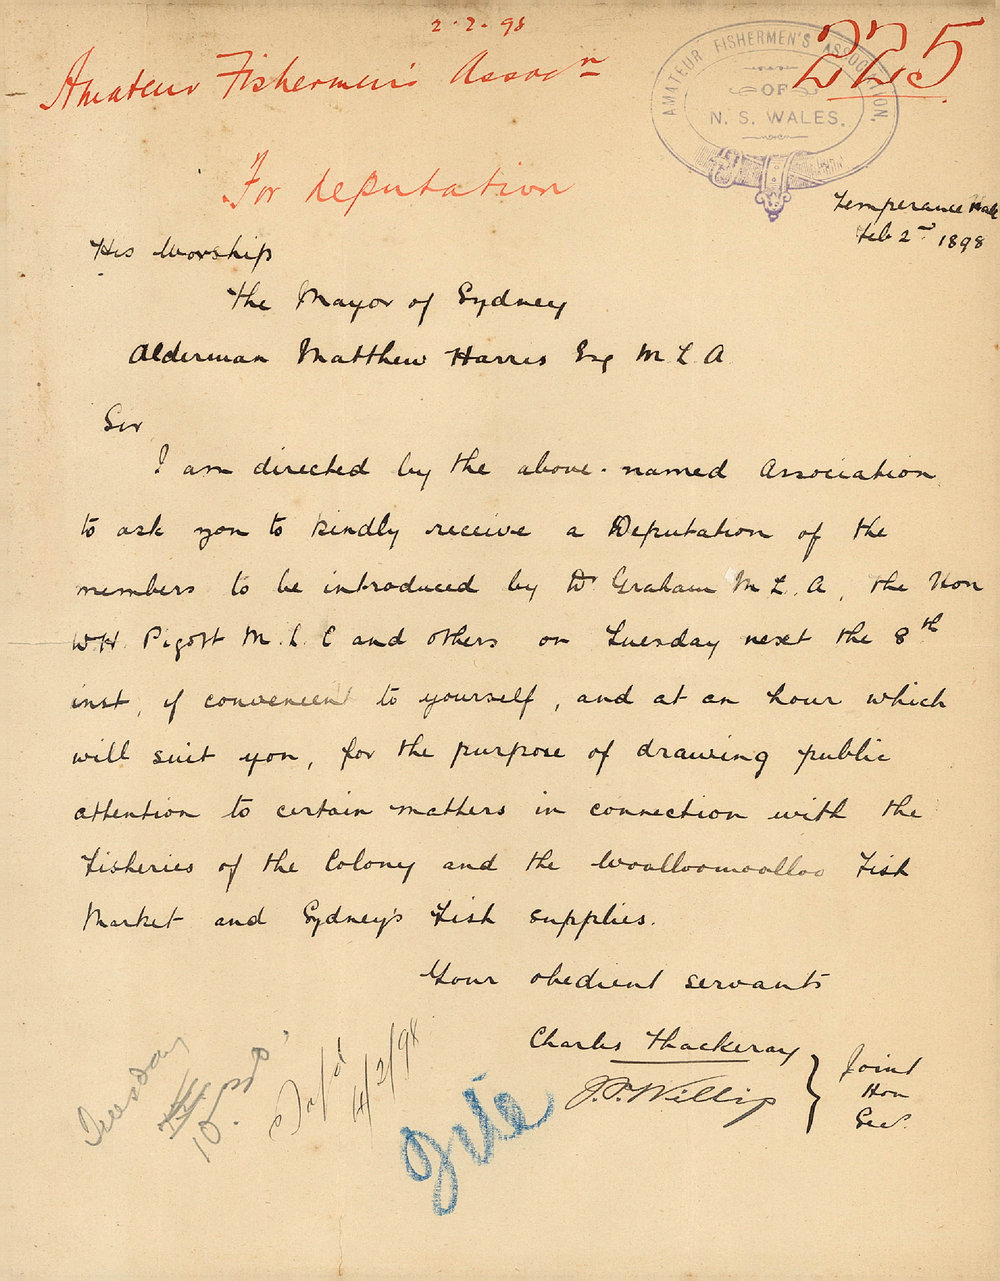 2.2.98
Amateur Fishermen's Assocn
225
AMATEUR FISHERMEN'S ASSOCIATION.
OF
N. S. WALES.
For deputation
Temperance Hall
Feb 2nd 1898
His Worship
The Mayor of Sydney
Alderman Matthew Harris Esq M L A
Sir,
I am directed by the above-named Association
to ask you to kindly receive a Deputation of the
members to be introduced by Dr Graham M L. A, the Hon
W.H. Pigott M. L. C and others on Tuesday next the 8th
inst, if convenient to yourself, and at an hour which
will suit you, for the purpose of drawing public
attention to certain matters in connection with the
Fisheries of the Colony and the Woolloomoolloo Fish
Market and Sydney's Fish supplies.
Your obedient servants
Charles Thackeray
J.P. Willis
Joint
Hon
Sec.
Tuesday
4/2/98